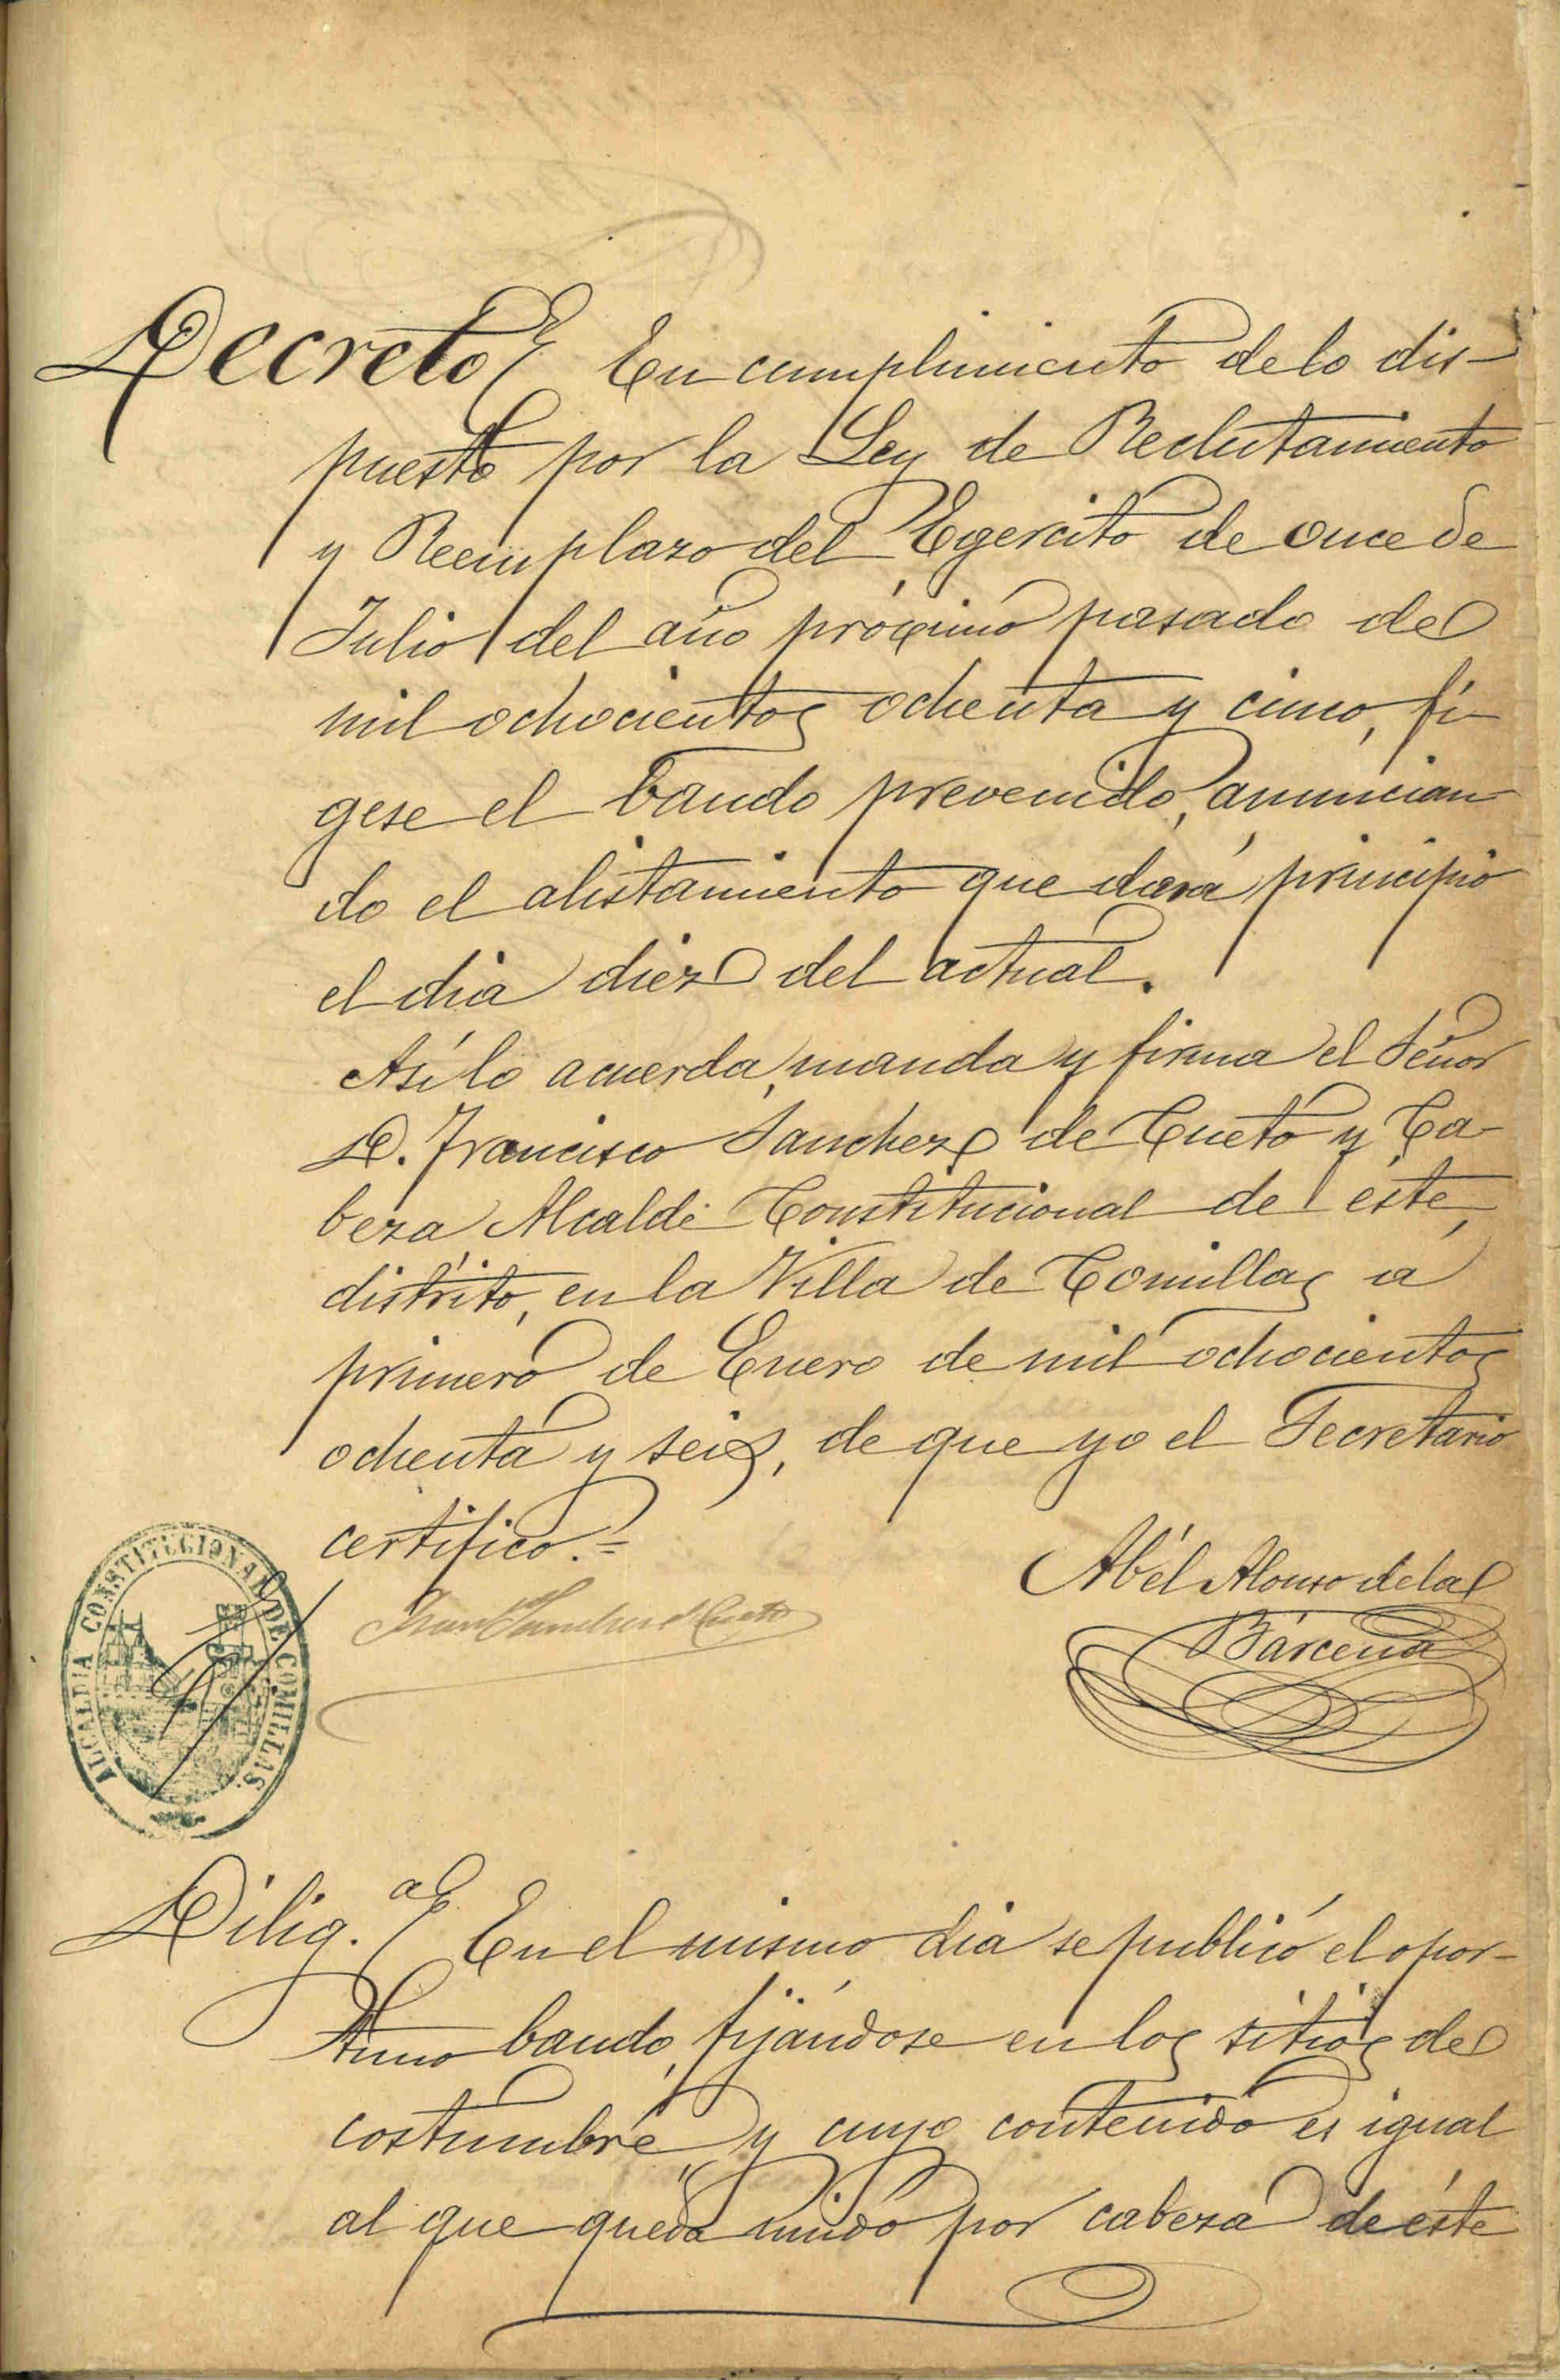 Decreto En cumplimiento de lo dis-
puesto por la Ley de Reclutamiento
y Reemplazo del Egercito de once de
Julio del año próximo pasado de
mil ochocientos ochenta y cinco, fi-
gese el bando prevenido, anuncian-
do el alistamiento que dará principio
el dia diez del actual.
Asi lo acuerda, manda y firma el Señor
D. Francisco Sanchez de Cueto y Ca-
beza Alcalde Constitucional de éste
distrito, en la Villa de Comillas á
primero de Enero de mil ochocientos
ochenta y seis, de que yo el Secretario
certifico.=
Fran Sanchez d Cueto
Abél Alonso de la
Bárcena
ALCALDIA CONSTITUCIONAL DE COMILLAS.
Dilig.a En el mismo dia se publicó el opor-
tuno bando, fijándose en los sitios de
costumbre y cuyo contenido es igual
al que queda unido por cabeza de éste